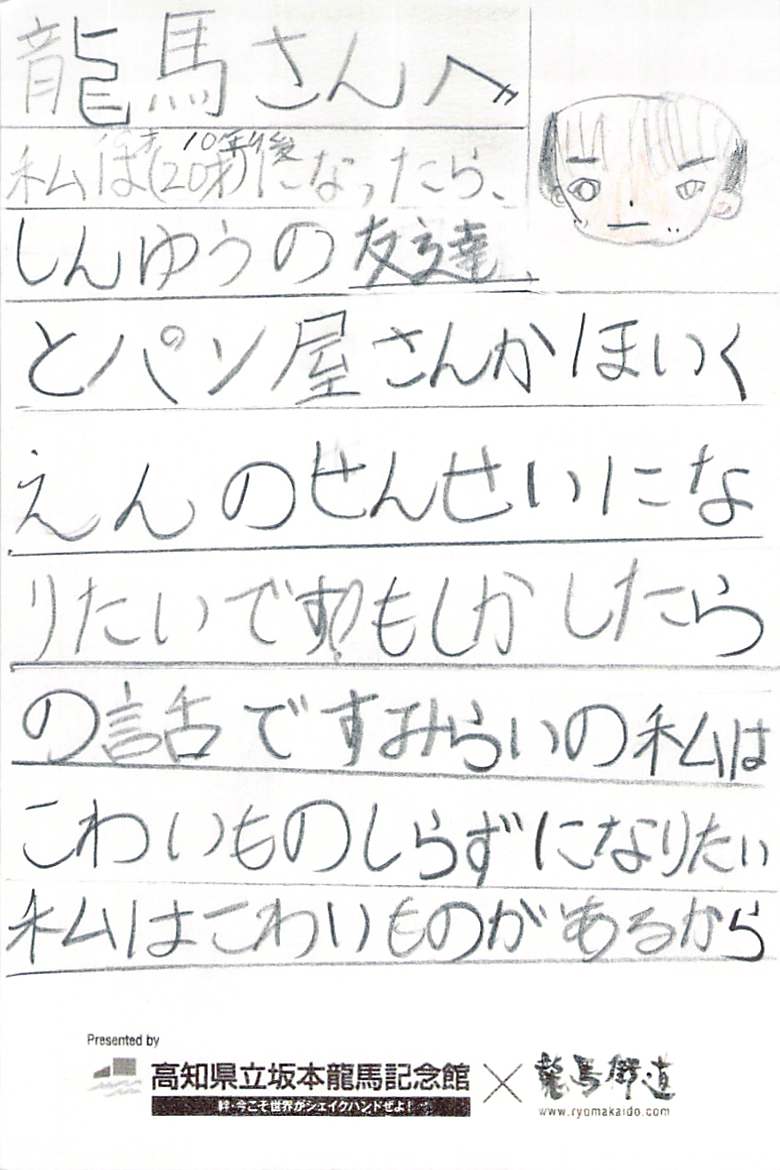 龍馬さんへ
10年後
私は(20才)になったら、
しんゆうの友達、
とパン屋さんかほいく
えんのせんせいにな
りたいです!もしかしたら
の話ですみらいの私は
こわいものしらずになりたい
私はこわいものがあるから
Presented by
高知県立坂本龍馬記念館×龍馬街道
絆・今こそ世界がシェイクハンドぜよ!
www.ryomakaido.com